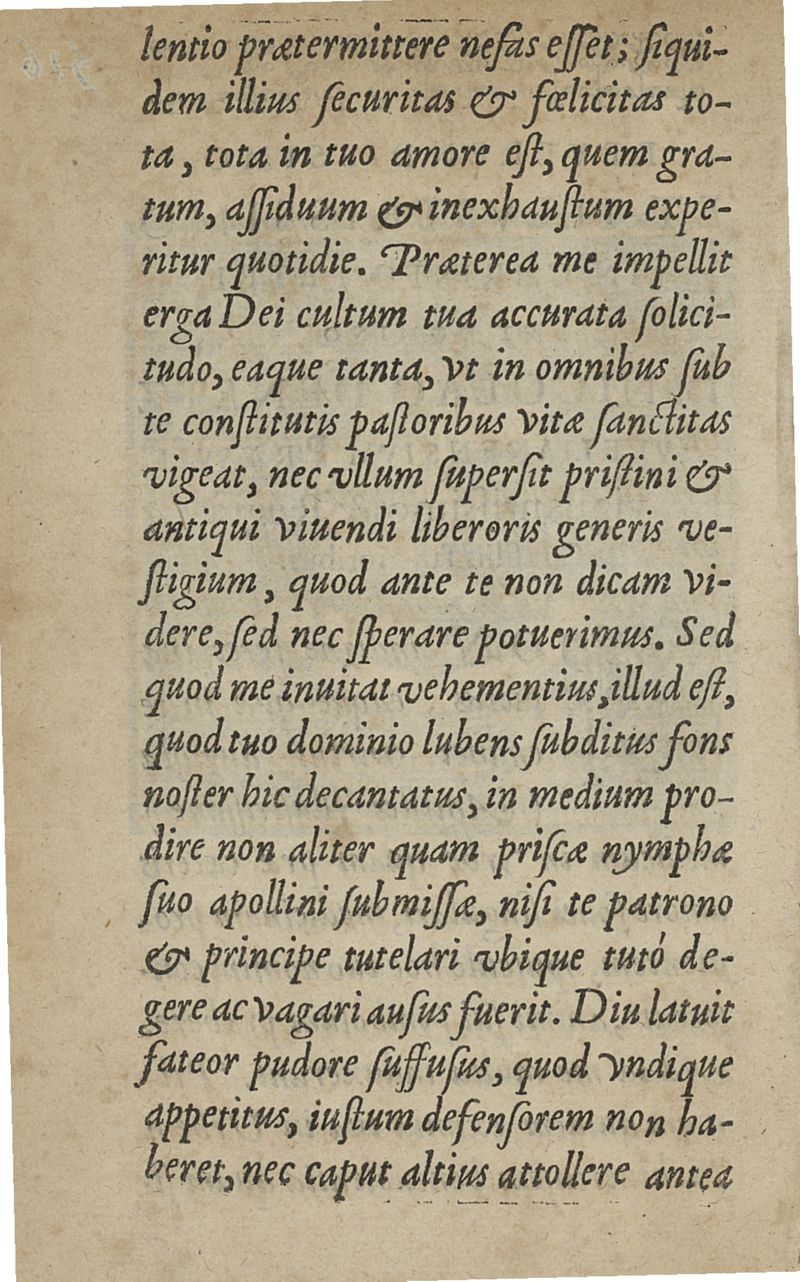 lentio prætermittere nefas eſſet; ſiqui-
dem illius ſecuritas & fœlicitas to-
ta, tota in tuo amore eſt, quem gra-
tum, aſſiduum & inexhauſtum expe-
ritur quotidie. Præterea me impellit
erga Dei cultum tua accurata ſolici-
tudo, eaque tanta, vt in omnibus ſub
te conſtitutis paſtoribus vitæ ſanctitas
vigeat, nec vllum ſuperſit priſtini &
antiqui viuendi liberoris generis ve-
ſtigium, quod ante te non dicam vi-
dere, ſed nec ſperare potuerimus. Sed
quod me inuitat vehementius, illud eſt,
quod tuo dominio lubens ſubditus fons
noſter hic decantatus, in medium pro-
dire non aliter quam priſcæ nymphæ
ſuo apollini ſubmiſſæ, niſi te patrono
& principe tutelari vbique tutó de-
gere ac vagari auſus fuerit. Diu latuit
fateor pudore ſuffuſus, quod vndique
appetitus, iuſtum defenſorem non ha-
beret, nec caput altius attollere antea